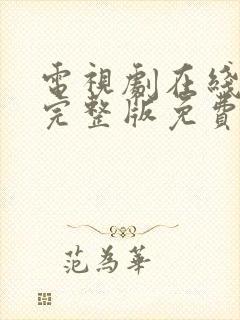 電視劇在綫
完整版免費
范為華